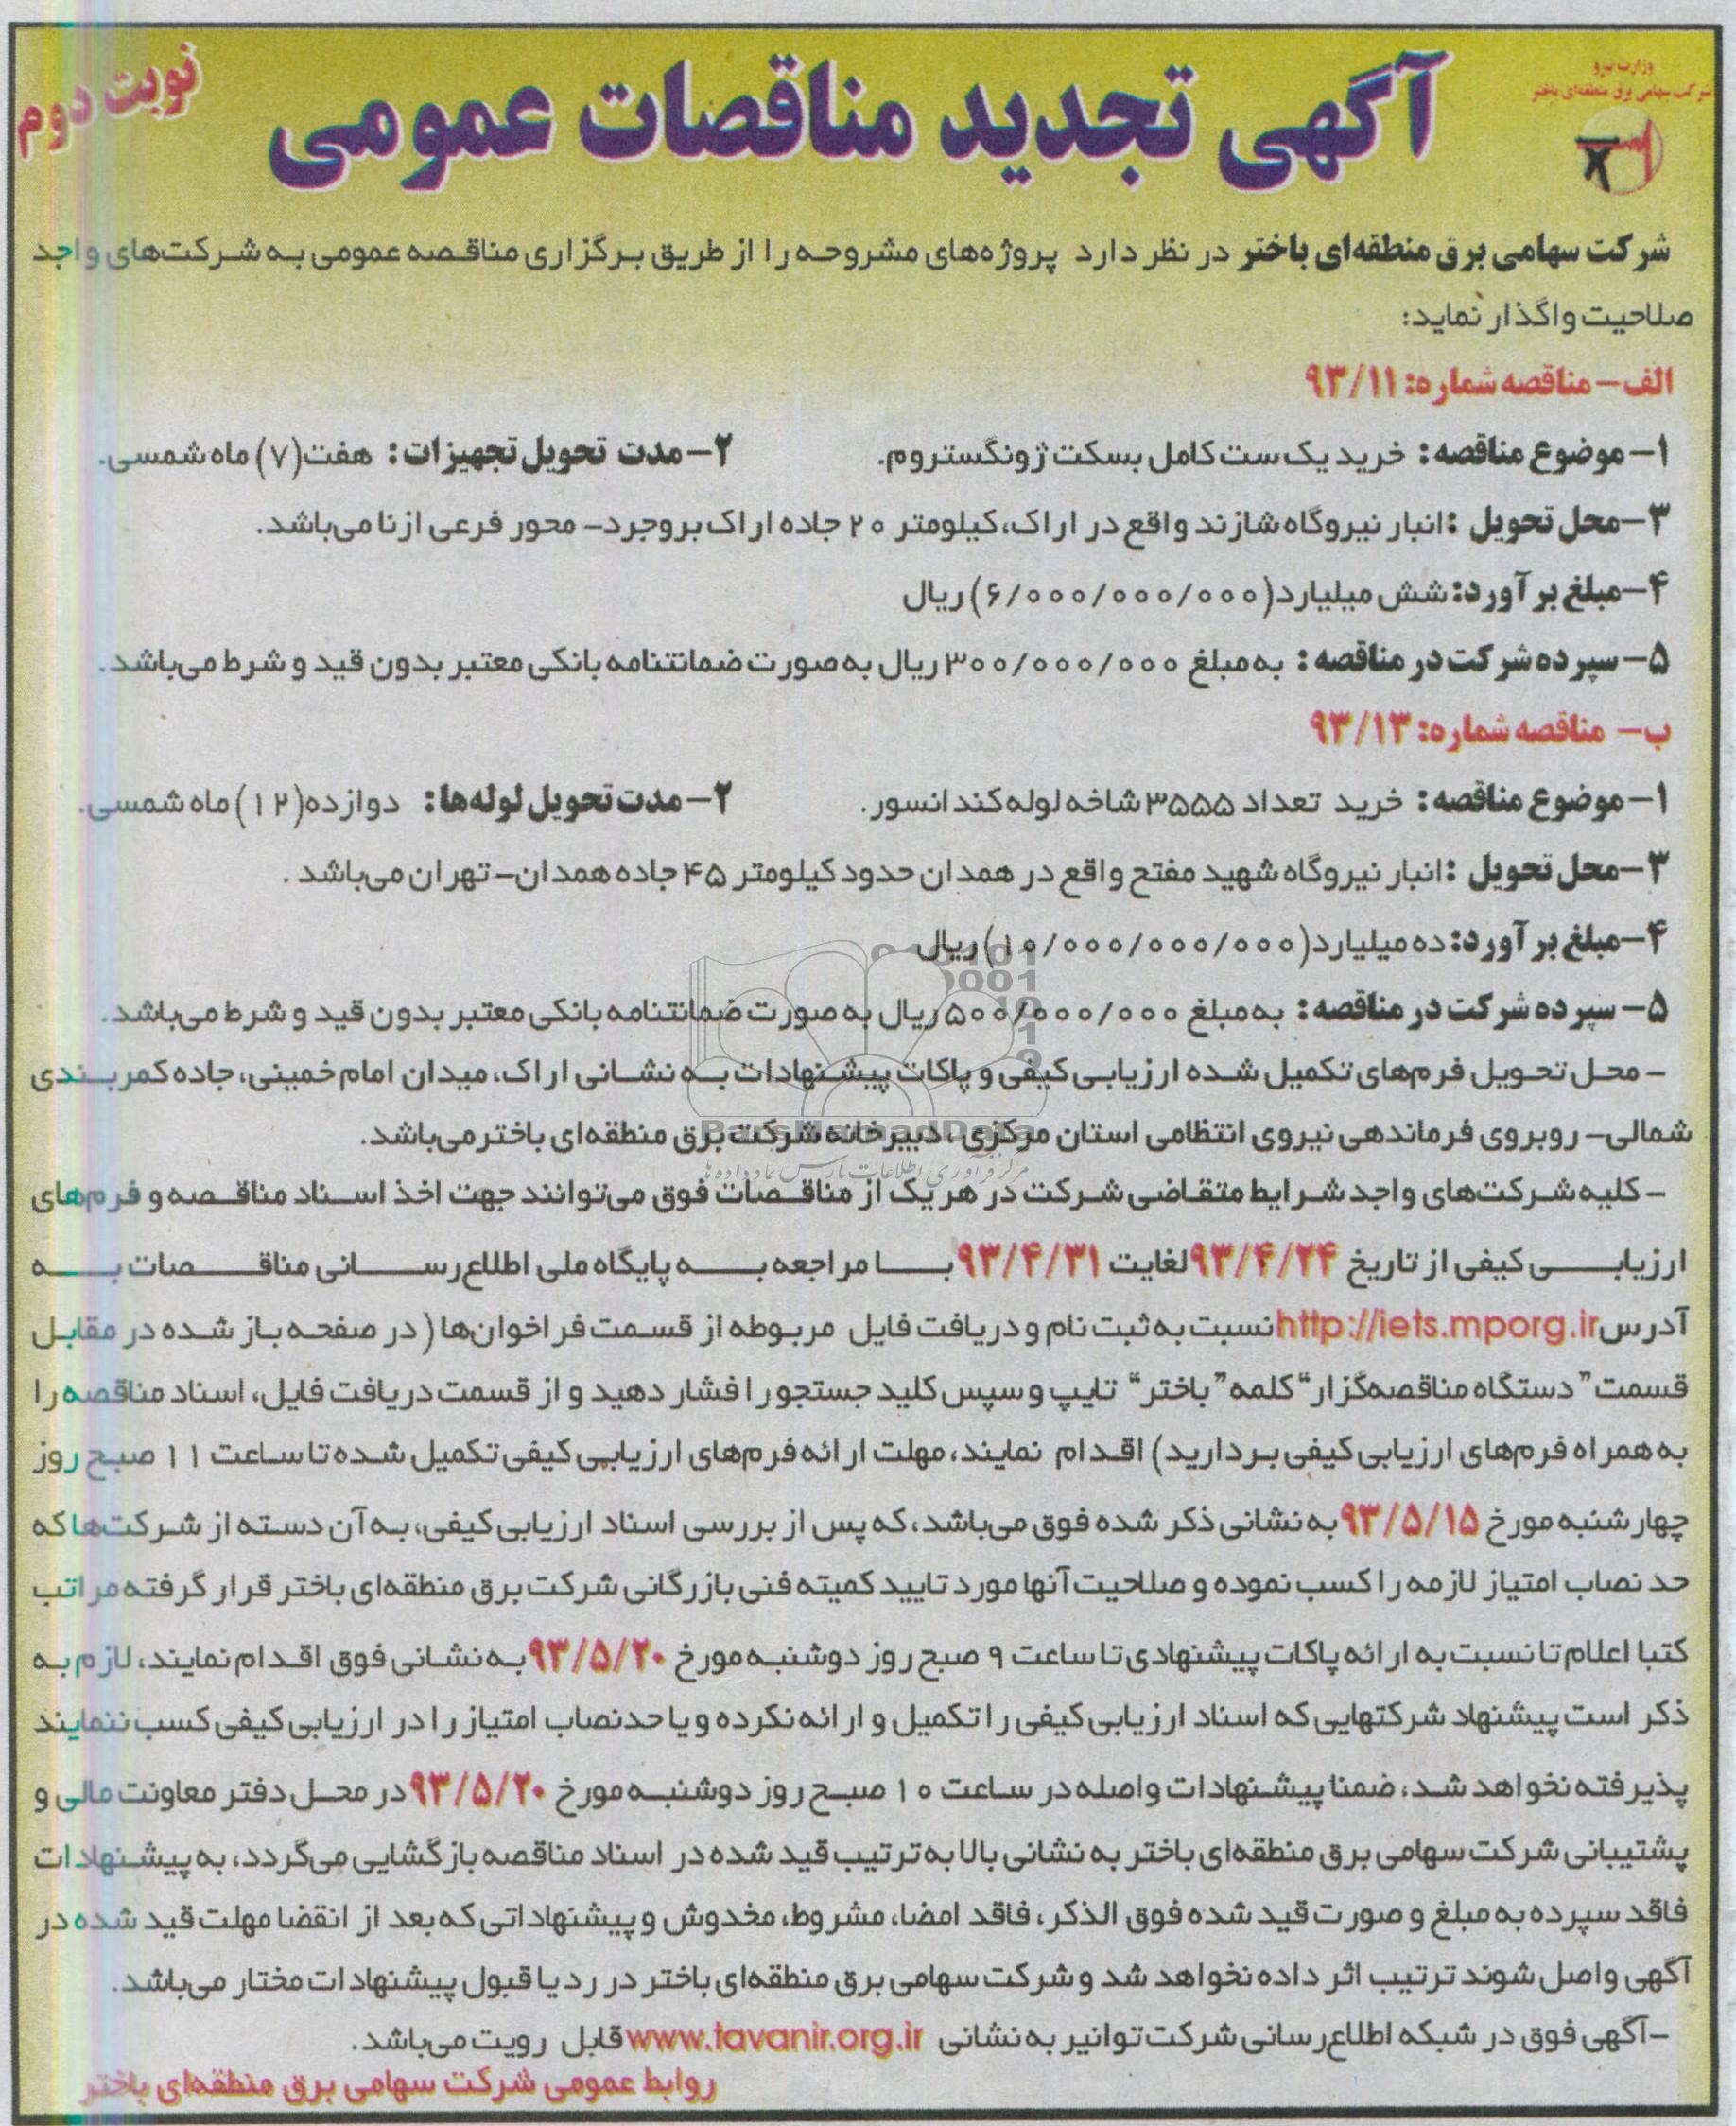 وزارت نیرو
شرکت سهامی برق منطقه‌ای باختر
آگهی تجدید مناقصات عمومی
نوبت دوم
شرکت سهامی برق منطقه‌ای باختر در نظر دارد پروژه‌های مشروحه را از طریق برگزاری مناقصه عمومی به شرکت‌های واجد
صلاحیت واگذار نماید:
الف- مناقصه شماره: ۹۳/۱۱
۱- موضوع مناقصه: خرید یک ست کامل بسکت ژونگستروم. ۲- مدت تحویل تجهیزات: هفت(۷) ماه شمسی.
۳-محل تحویل :انبار نیروگاه شازند واقع در اراک، کیلومتر ۲۰ جاده اراک بروجرد- محور فرعی ازنا می‌باشد.
۴-مبلغ برآورد: شش میلیارد(۶/۰۰۰/۰۰۰/۰۰۰) ریال
۵- سپرده شرکت در مناقصه: به مبلغ ۳۰۰/۰۰۰/۰۰۰ ریال به صورت ضمانتنامه بانکی معتبر بدون قید و شرط می‌باشد.
ب- مناقصه شماره: ۹۳/۱۳
۱- موضوع مناقصه: خرید تعداد ۳۵۵۵ شاخه لوله کندانسور. ۲- مدت تحویل لوله‌ها: دوازده(۱۲) ماه شمسی.
۳-محل تحویل :انبار نیروگاه شهید مفتح واقع در همدان حدود کیلومتر ۴۵ جاده همدان- تهران می‌باشد .
۴-مبلغ برآورد: ده میلیارد(۱۰/۰۰۰/۰۰۰/۰۰۰) ریال
۵- سپرده شرکت در مناقصه: به مبلغ ۵۰۰/۰۰۰/۰۰۰ ریال به صورت ضمانتنامه بانکی معتبر بدون قید و شرط می‌باشد.
- محل تحویل فرم‌های تکمیل شده ارزیابی کیفی و پاکات پیشنهادات به نشانی اراک، میدان امام خمینی، جاده کمربندی
شمالی- روبروی فرماندهی نیروی انتظامی استان مرکزی ، دبیرخانه شرکت برق منطقه‌ای باختر می‌باشد.
ParsNamadData
مرکز فرآوری اطلاعات پارس نماد داده ها
- کلیه شرکت‌های واجد شرایط متقاضی شرکت در هر یک از مناقصات فوق می‌توانند جهت اخذ اسناد مناقصه و فرم‌های
ارزیابی کیفی از تاریخ ۹۳/۴/۲۴ لغایت ۹۳/۴/۳۱ با مراجعه به پایگاه ملی اطلاع‌رسانی مناقصات به
آدرس http://iets.mporg.ir نسبت به ثبت نام و دریافت فایل مربوطه از قسمت فراخوان‌ها ( در صفحه باز شده در مقابل
قسمت "دستگاه مناقصه‌گزار" کلمه "باختر" تایپ و سپس کلید جستجو را فشار دهید و از قسمت دریافت فایل، اسناد مناقصه را
به همراه فرم‌های ارزیابی کیفی بردارید) اقدام نمایند، مهلت ارائه فرم‌های ارزیابی کیفی تکمیل شده تا ساعت ۱۱ صبح روز
چهارشنبه مورخ ۹۳/۵/۱۵ به نشانی ذکر شده فوق می‌باشد، که پس از بررسی اسناد ارزیابی کیفی، به آن دسته از شرکت‌ها که
حد نصاب امتیاز لازمه را کسب نموده و صلاحیت آنها مورد تایید کمیته فنی بازرگانی شرکت برق منطقه‌ای باختر قرار گرفته مراتب
کتبا اعلام تا نسبت به ارائه پاکات پیشنهادی تا ساعت ۹ صبح روز دوشنبه مورخ ۹۳/۵/۲۰ به نشانی فوق اقدام نمایند، لازم به
ذکر است پیشنهاد شرکتهایی که اسناد ارزیابی کیفی را تکمیل و ارائه نکرده و یا حدنصاب امتیاز را در ارزیابی کیفی کسب ننمایند
پذیرفته نخواهد شد، ضمنا پیشنهادات واصله در ساعت ۱۰ صبح روز دوشنبه مورخ ۹۳/۵/۲۰ در محل دفتر معاونت مالی و
پشتیبانی شرکت سهامی برق منطقه‌ای باختر به نشانی بالا به ترتیب قید شده در اسناد مناقصه بازگشایی می‌گردد، به پیشنهادات
فاقد سپرده به مبلغ و صورت قید شده فوق الذکر، فاقد امضا، مشروط، مخدوش و پیشنهاداتی که بعد از انقضا مهلت قید شده در
آگهی واصل شوند ترتیب اثر داده نخواهد شد و شرکت سهامی برق منطقه‌ای باختر در رد یا قبول پیشنهادات مختار می‌باشد.
-آگهی فوق در شبکه اطلاع‌رسانی شرکت توانیر به نشانی www.tavanir.org.ir قابل رویت می‌باشد.
روابط عمومی شرکت سهامی برق منطقه‌ای باختر